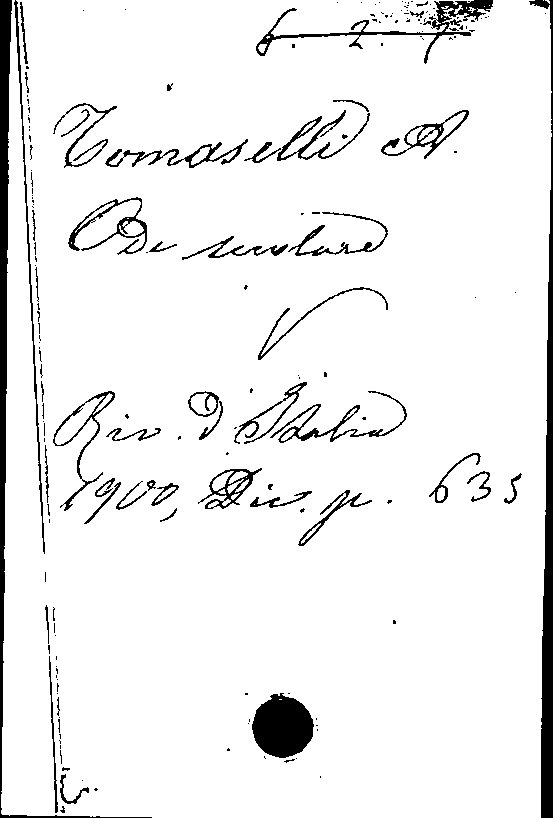 6. 2. 1
Tomaselli A.
Ode secolare
V
Riv. d'Italia
1900, Dic. p. 635